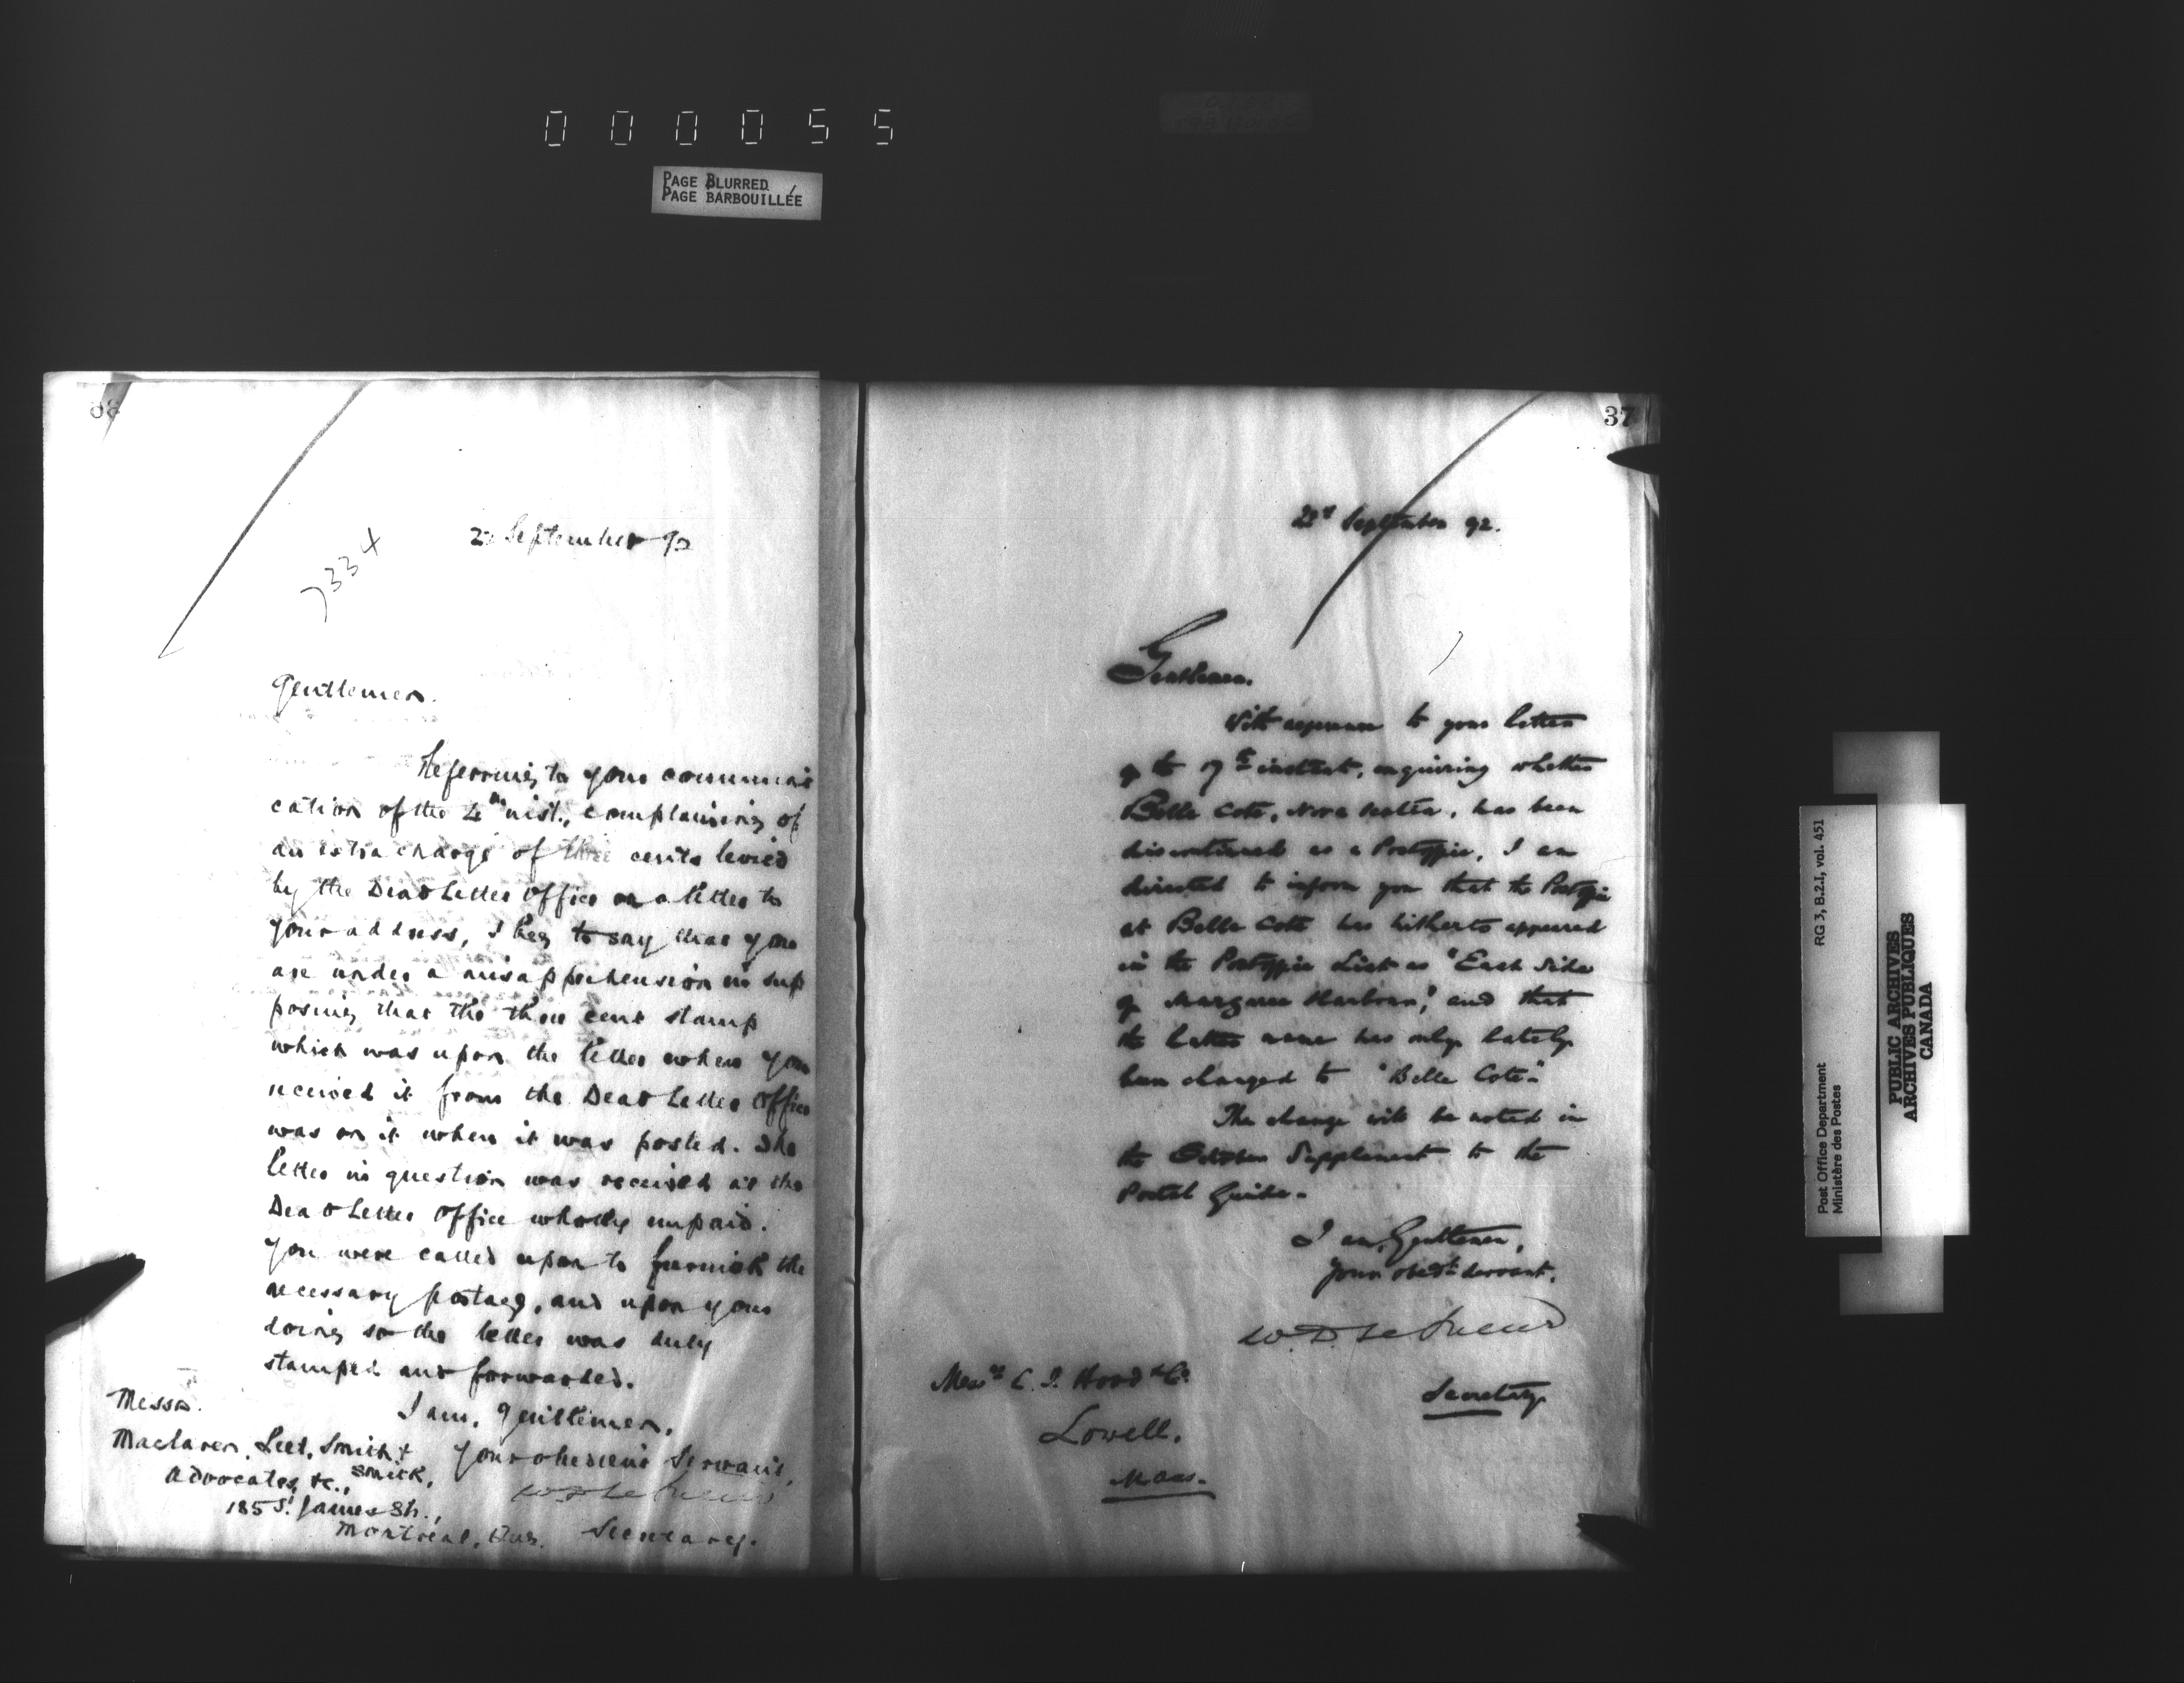 000055
PAGE BLURRED
PAGE BARBOUILLÉE
7334
22 September 92
Gentlemen.
Referring to your communi
cation of the 4th inst., complaining of
an extra charge of three cents levied
by the Dead Letter Office on a letter to
your address, I beg to say that you
are under a misapprehension in sup
posing that the three cent stamp
which was upon the letter when you
received it from the Dead Letter Office
was on it when it was posted. The
letter in question was received at the
Dead Letter Office wholly unpaid.
You were called upon to furnish the
necessary postage, and upon your
doing so the letter was duly
stamped and forwarded.
I am, Gentlemen,
Your obedient Servant,
W D LeSueur
Secretary.
Messrs.
Maclaren, Leet, Smith &
Smith,
Advocates, &c.,
185 St. James St.,
Montreal, Que.
37
22d September 92.
Gentlemen.
With reference to your letter
of the 17th instant, enquiring whether
Belle Cote, Nova Scotia, has been
discontinued as a Postoffice, I am
directed to inform you that the Postoffice
at Belle Cote has hitherto appeared
in the Postoffice List as "East Side
of Margaree Harbour," and that
the latter name has only lately
been changed to "Belle Cote."
The change will be noted in
the October Supplement to the
Postal Guide.
I am, Gentlemen,
Your obedt. servant,
W. D. LeSueur
Secretary
Messrs C. I. Hood & Co.
Lowell,
Mass.
Post Office Department
Ministère des Postes
RG 3, B.2.I, vol. 451
PUBLIC ARCHIVES
ARCHIVES PUBLIQUES
CANADA